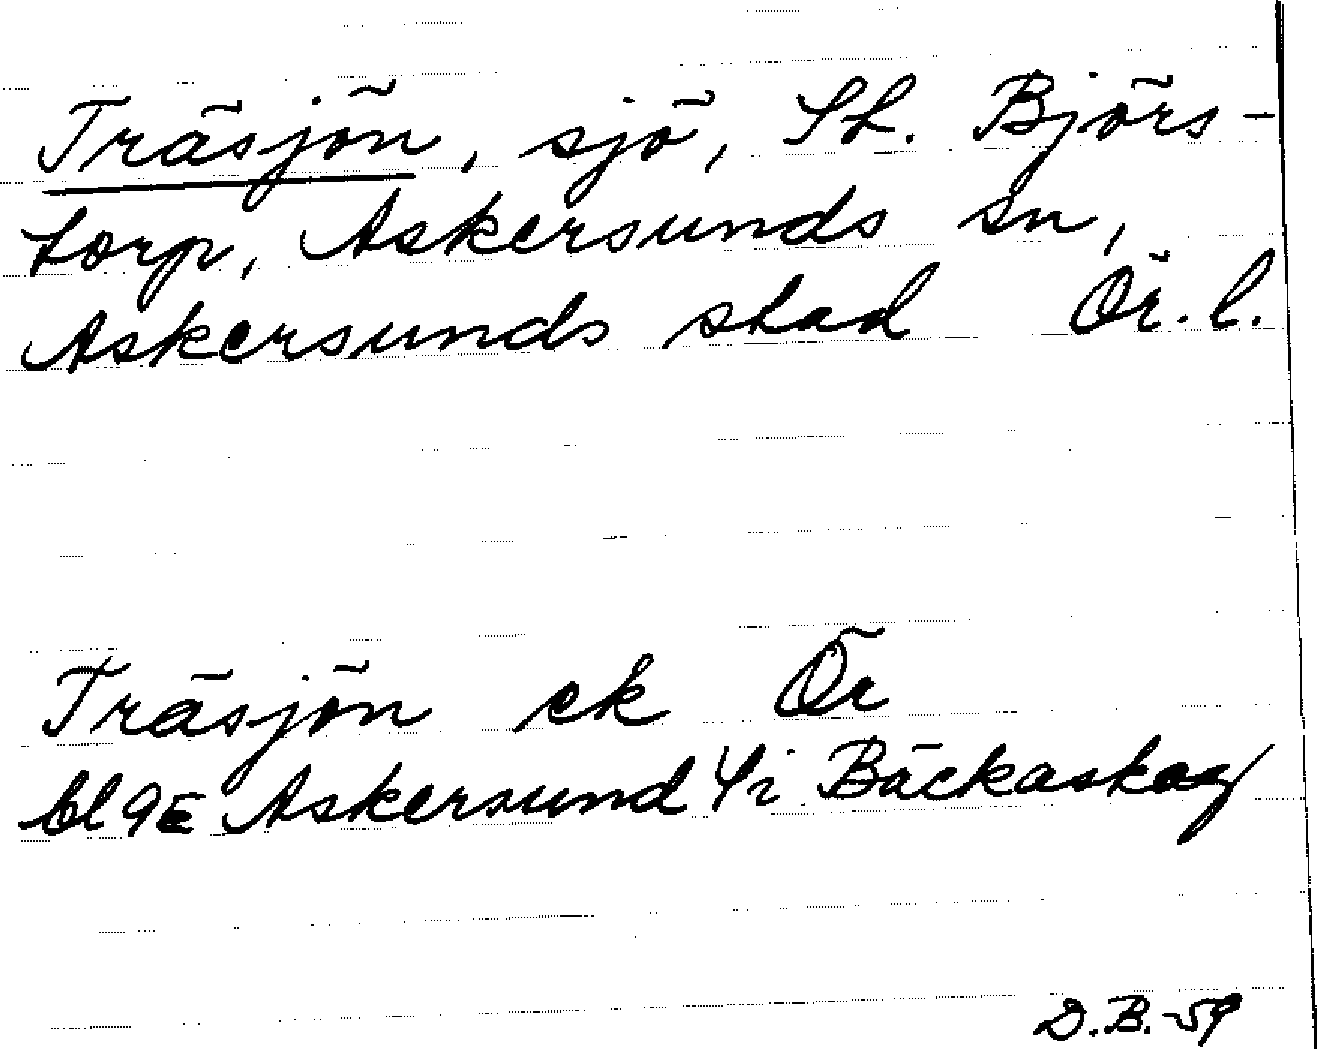 Träsjön, sjö, St. Björs-
torp, Askersunds sn,
Askersunds stad Ör. l.
Träsjön ek Ör
bl 9E Askersund Bäckaskog
D.B.-59